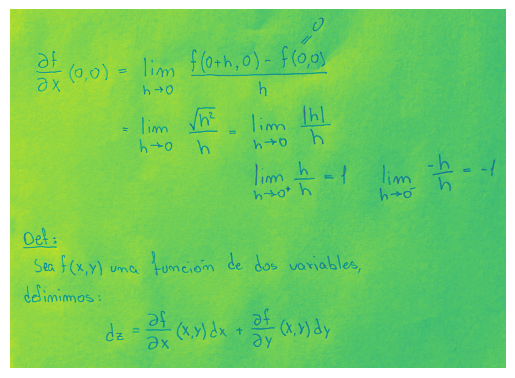 ∂f/∂x (0,0) = lim h→0 (f(0+h,0) - f(0,0))/h = 0
= lim h→0 √h²/h = lim h→0 |h|/h
lim h→0⁺ h/h = 1 lim h→0⁻ -h/h = -1
Def:
Sea f(x,y) una función de dos variables,
definimos:
dz = ∂f/∂x (x,y) dx + ∂f/∂y (x,y) dy